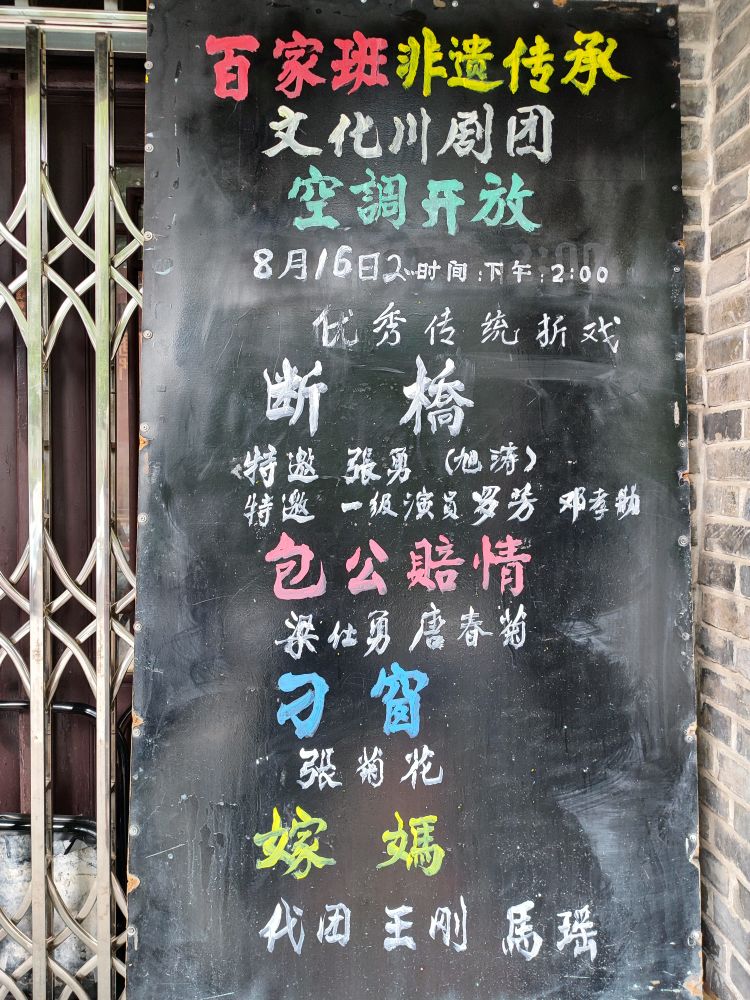 百家班非遗传承
文化川剧团
空調开放
8月16日 时间:下午:2:00
优秀传统折戏
断橋
特邀 張勇(旭涛)
特邀 一级演员罗芳 邓孝勋
包公賠情
梁仕勇 唐春菊
刁窗
張菊花
嫁媽
代团 王刚 馬瑶